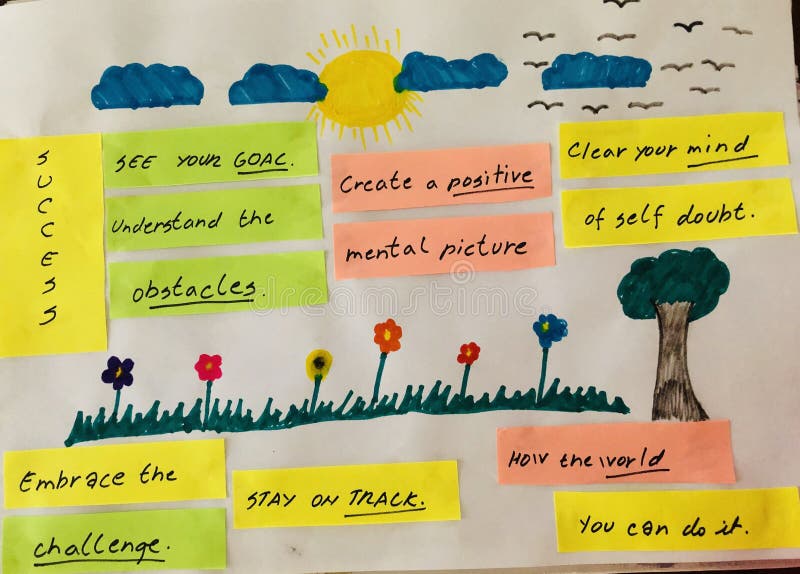 SUCCESS
SEE YOUR GOAL.
Understand the
obstacles.
Create a positive
mental picture
Clear your mind
of self doubt.
Embrace the
challenge.
STAY ON TRACK.
HOW the world
You can do it.
dreamstime